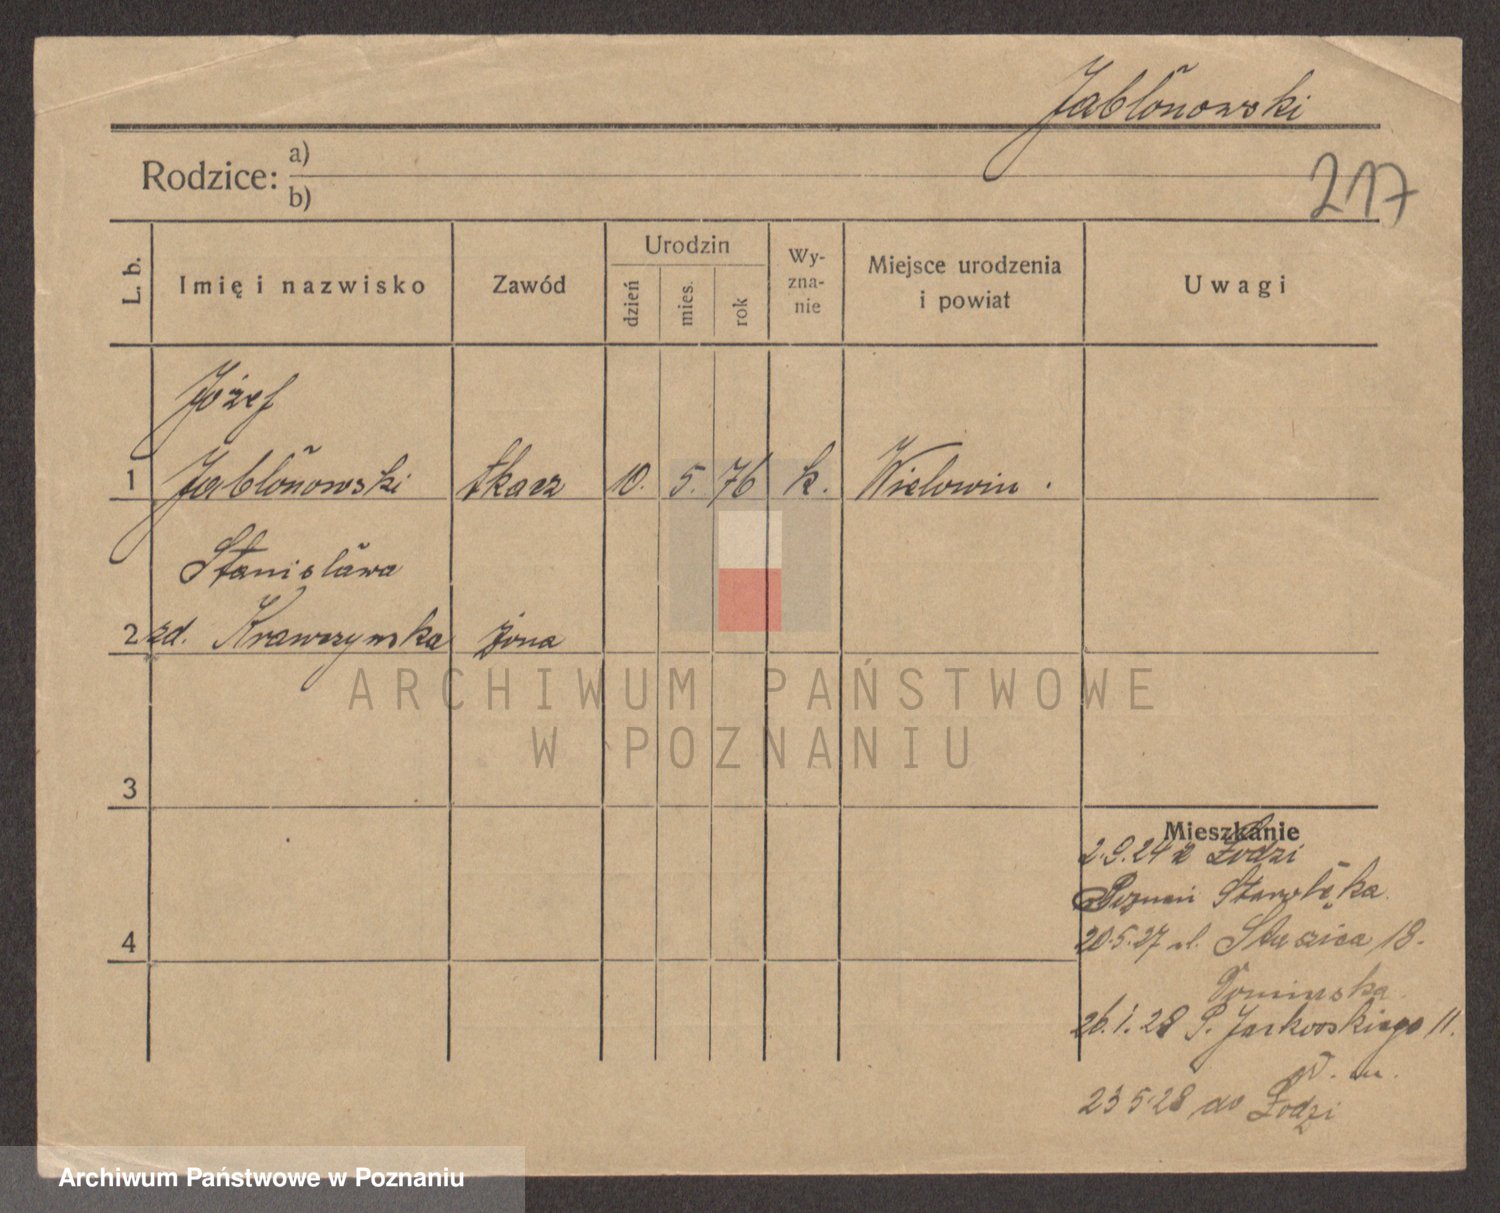 Jabłonowski
Rodzice: a)
b)
217
L. b. Imię i nazwisko Zawód Urodzin dzień mies. rok Wyznanie Miejsce urodzenia i powiat Uwagi
Józef
1 Jabłonowski tkacz 10. 5. 76 k. Wielowiu .
Stanisława
2 zd. Krawczynska żona
ARCHIWUM PAŃSTWOWE
W POZNANIU
3
Mieszkanie
2.9.24 z Łodzi
Poznań Starołęka
4
20.5.27 ul. Staszica 18.
26.1.28 P. Jackowskiego 11.
23 5.28 do Łodzi
Archiwum Państwowe w Poznaniu